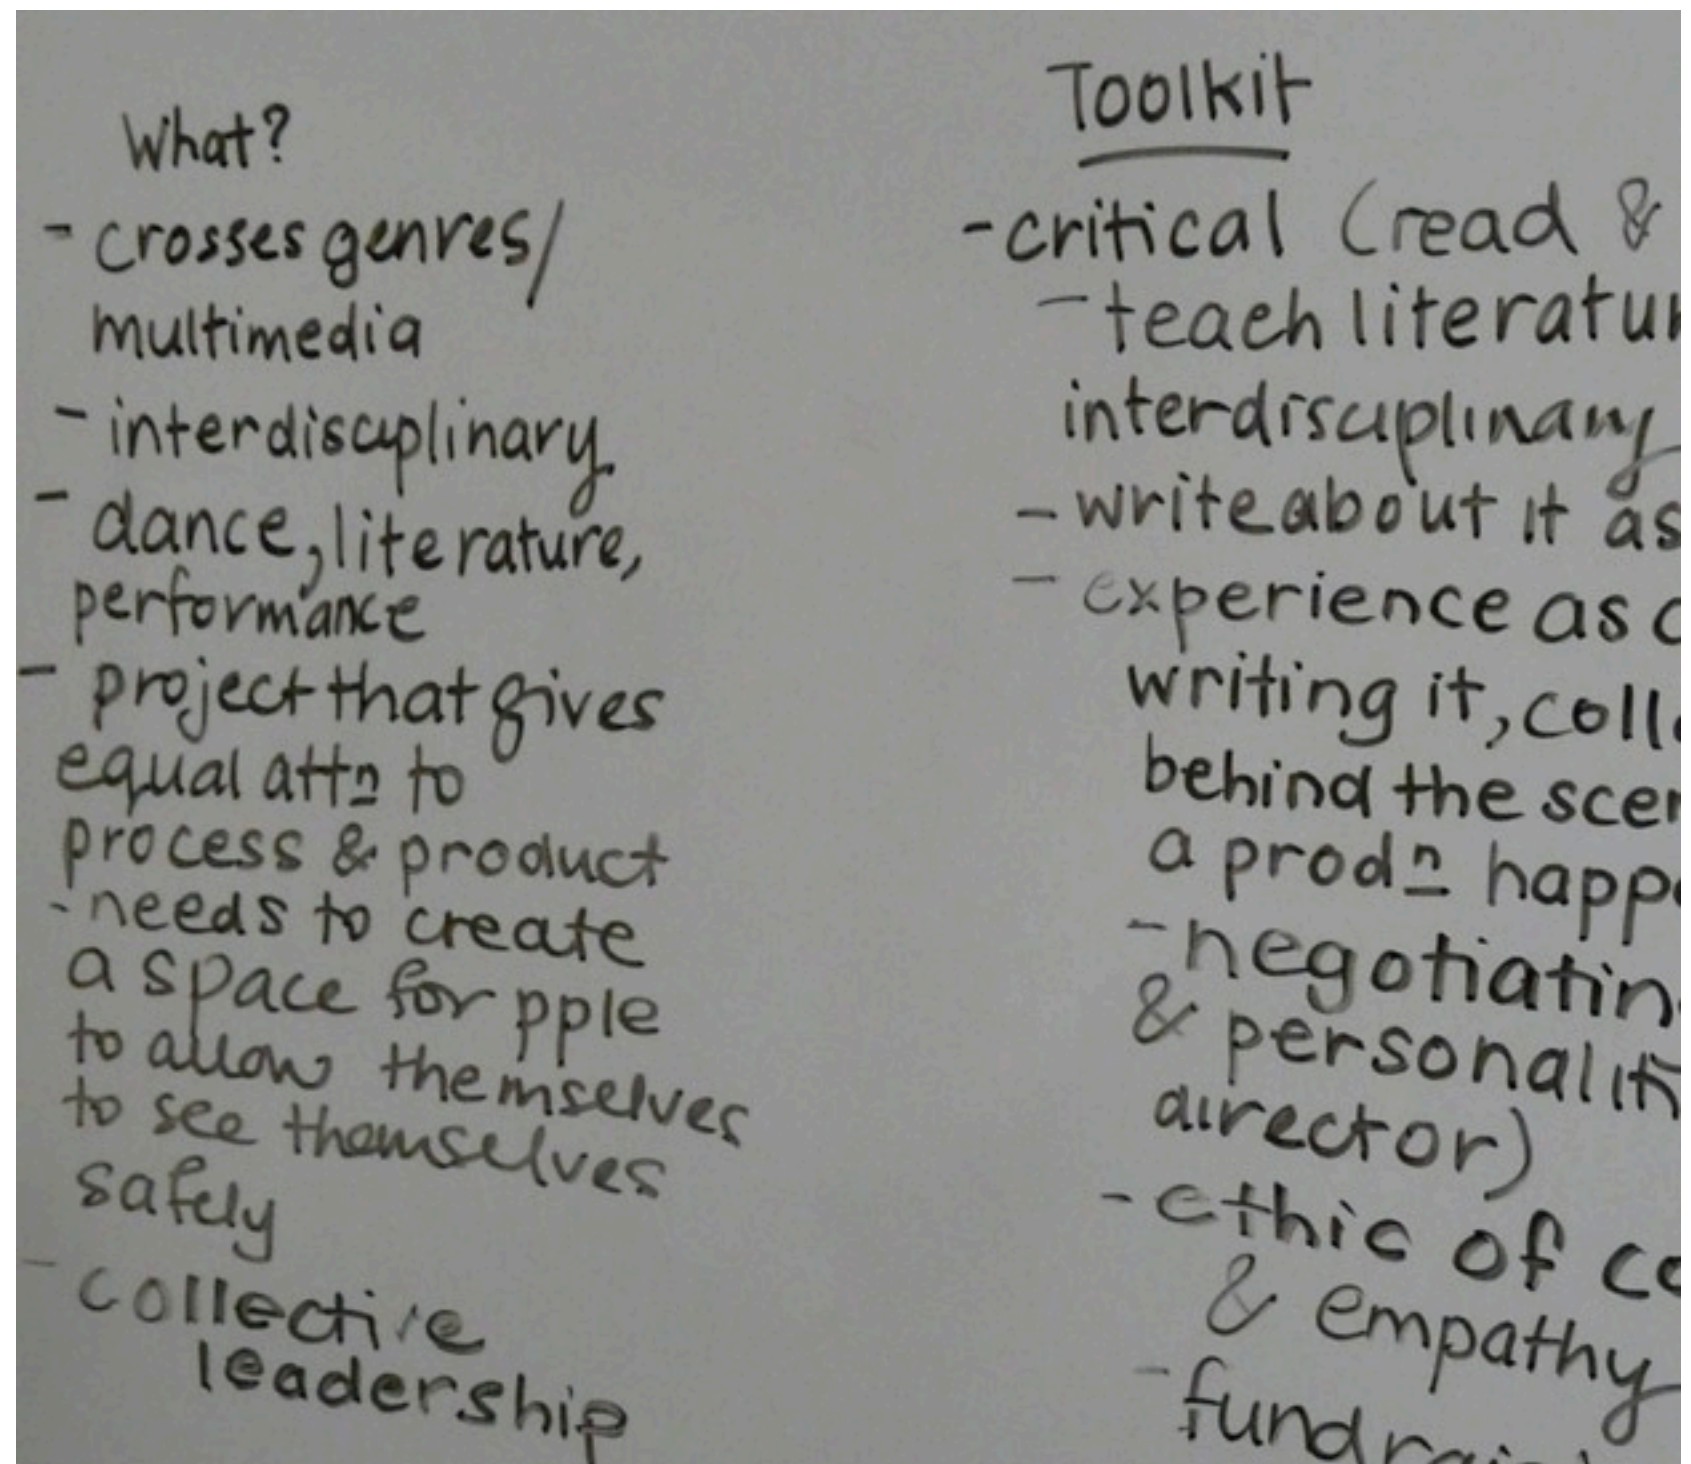 What?
- crosses genres/
multimedia
- interdisciplinary
- dance, literature,
performance
- project that gives
equal attn to
process & product
- needs to create
a space for pple
to allow themselves
to see themselves
safely
- collective
leadership
Toolkit
- critical (read &
- teach literatur
interdisciplinary
- write about it as
- experience as
writing it, coll
behind the scen
a prodn happe
- negotiating
& personaliti
director)
- ethic of
& empathy
- fundrais